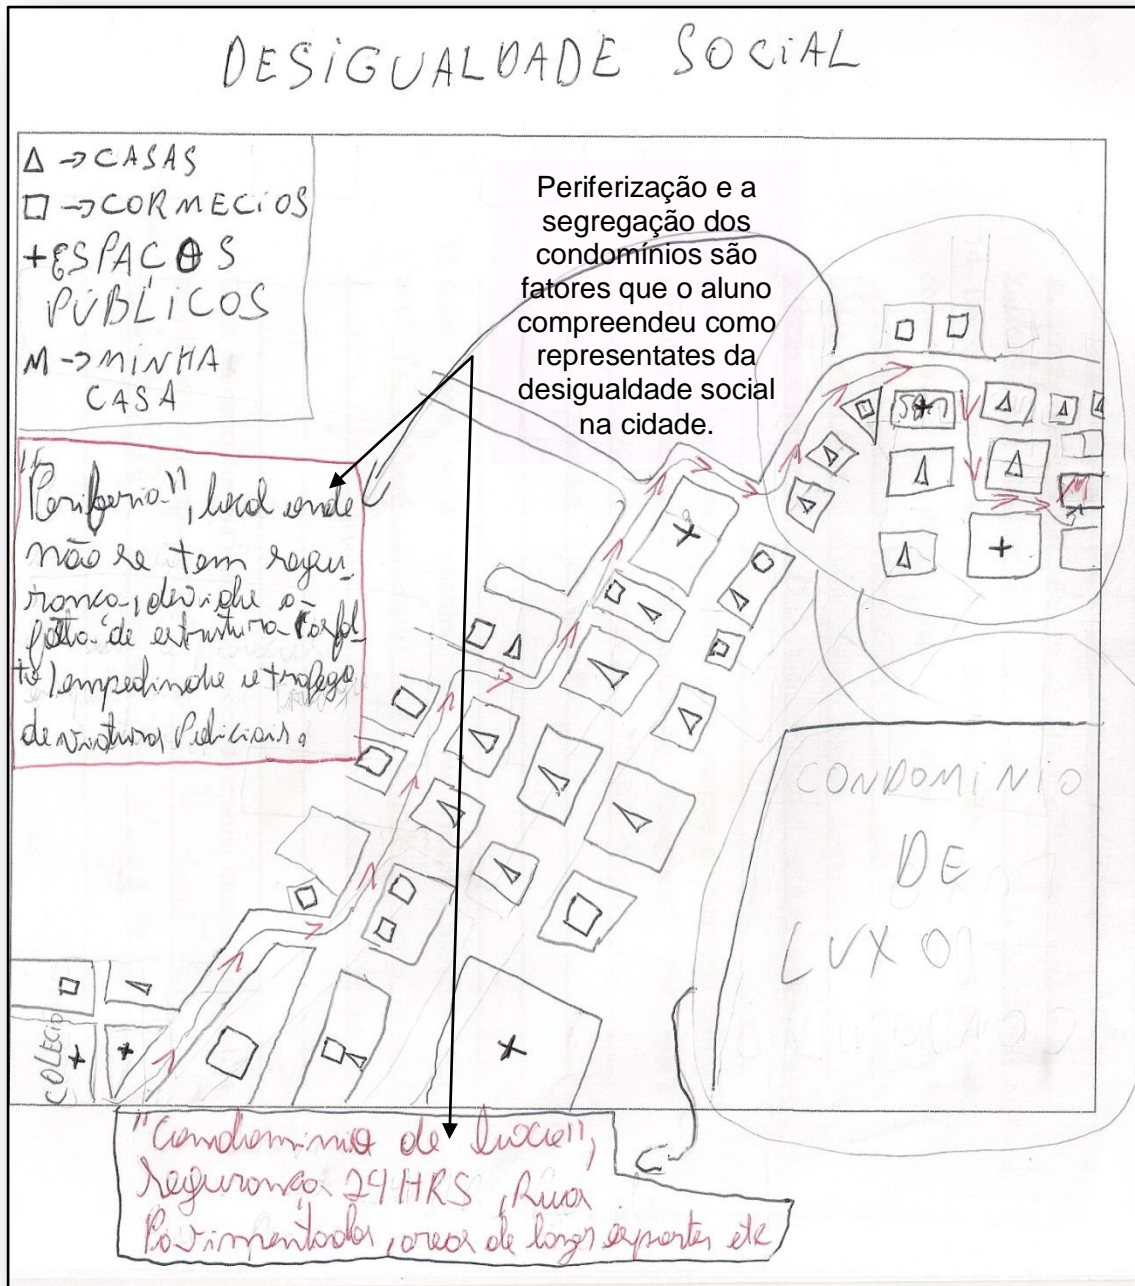 DESIGUALDADE SOCIAL
Δ → CASAS
□ → CORMECIOS
+ ESPAÇOS
PÚBLICOS
M → MINHA
CASA
Periferização e a
segregação dos
condomínios são
fatores que o aluno
compreendeu como
representates da
desigualdade social
na cidade.
"Periferia", local onde
não se tem segu-
rança, devido a
falta de estrutura
de viaturas Policiais.
M
CONDOMINIO
DE
LUXO
COLEGIO
"Condominio de luxo",
segurança 24HRS, Ruas
Pavimentadas, areas de etc